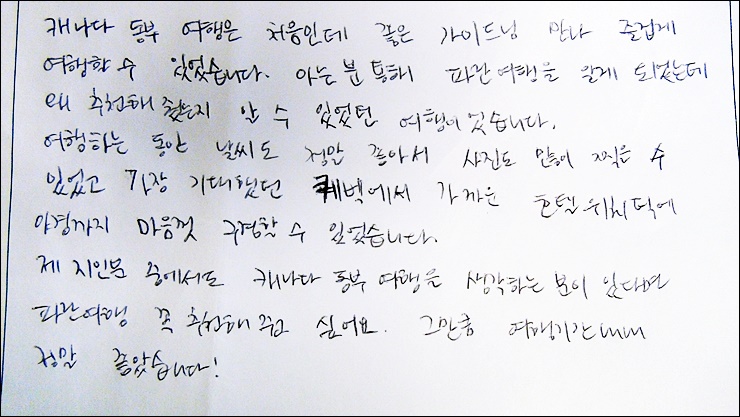 캐나다 동부 여행은 처음인데 좋은 가이드님 만나 즐겁게
여행할 수 있었습니다. 아는 분 통해 파란여행을 알게 되었는데
왜 추천해 줬는지 알 수 있었던 여행이었습니다.
여행하는 동안 날씨도 정말 좋아서 사진도 많이 찍을 수
있었고 가장 기대했던 퀘벡에서 가까운 호텔 위치 덕에
야경까지 마음껏 구경할 수 있었습니다.
제 지인분 중에서도 캐나다 동부 여행을 생각하는 분이 있다면
파란여행 꼭 추천해 주고 싶어요. 그만큼 여행기간내내
정말 좋았습니다!